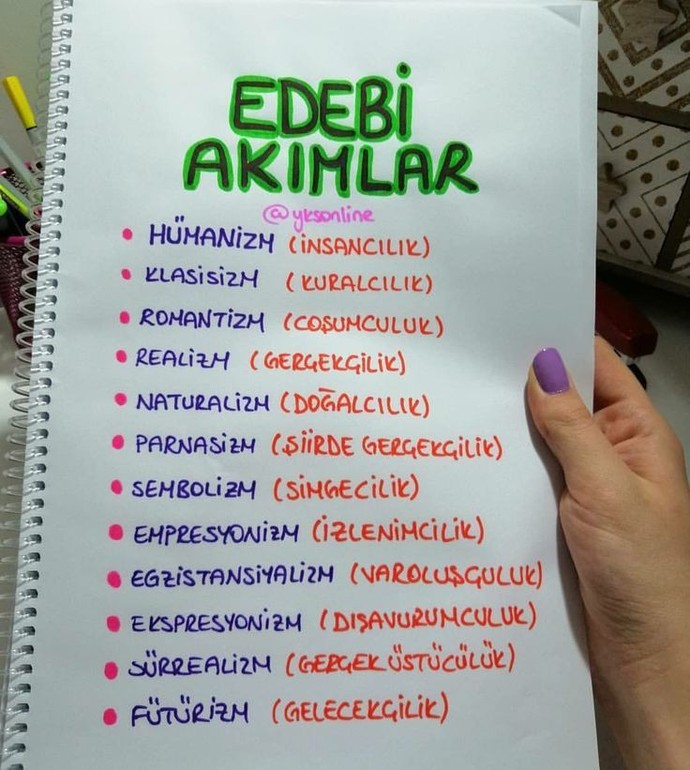 EDEBİ
AKIMLAR
@yksonline
• HÜMANİZM (İNSANCILIK)
• KLASİSİZM (KURALCILIK)
• ROMANTİZM (COŞUMCULUK)
• REALİZM (GERÇEKÇİLİK)
• NATURALİZM (DOĞALCILIK)
• PARNASİZM (ŞİİRDE GERÇEKÇİLİK)
• SEMBOLİZM (SİMGECİLİK)
• EMPRESYONİZM (İZLENİMCİLİK)
• EGZİSTANSİYALİZM (VAROLUŞÇULUK)
• EKSPRESYONİZM (DIŞAVURUMCULUK)
• SÜRREALİZM (GERÇEKÜSTÜCÜLÜK)
• FÜTÜRİZM (GELECEKÇİLİK)